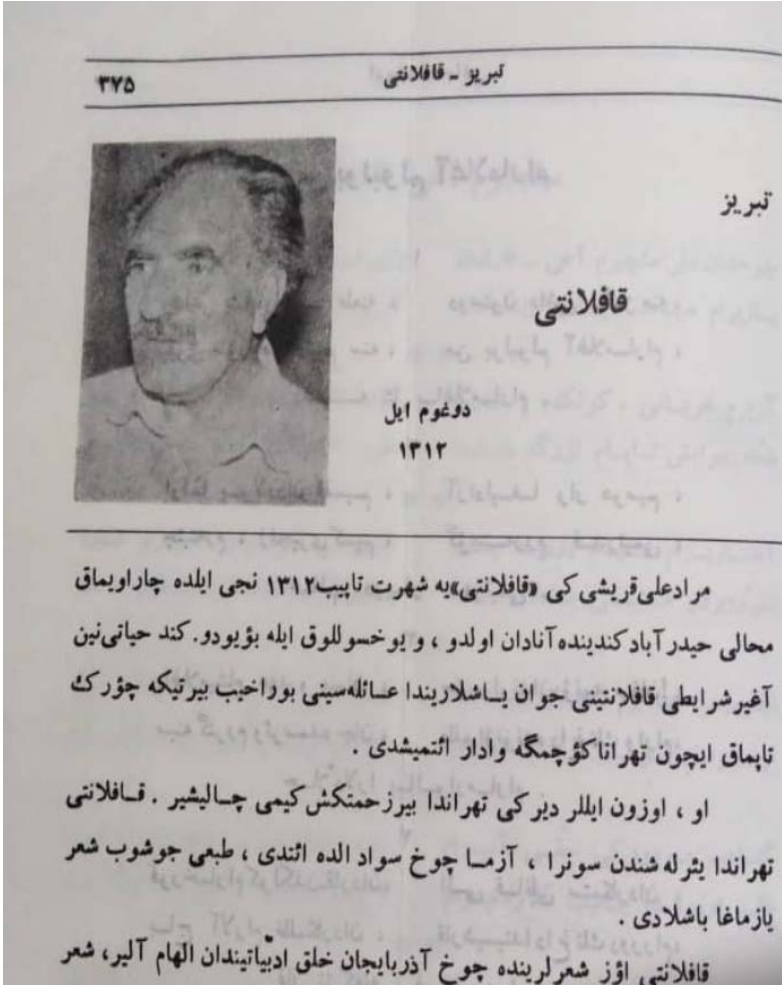 تبریز ـ قافلانتی
۳۷۵
تبریز
قافلانتی
دوغوم ایل
۱۳۱۲
مرادعلی قریشی کی «قافلانتی»یه شهرت تاپیب ۱۳۱۲ نجی ایلده چاراویماق
محالی حیدرآباد کندینده آنادان اولدو ، و یوخسوللوق ایله بؤیودو. کند حیاتی‌نین
آغیر شرایطی قافلانتینی جوان یـاشلاریندا عـائله‌سینی بوراخیب بیرتیکه چؤرک
تاپماق ایچون تهرانا کؤچمگه وادار ائتمیشدی .
او ، اوزون ایللر دیر کی تهراندا بیرزحمتکش کیمی چـالیشیر . قـافلانتی
تهراندا یئرله‌شندن سونرا ، آزمـا چوخ سواد الده ائتدی ، طبعی جوشوب شعر
یازماغا باشلادی .
قافلانتی اؤز شعرلرینده چوخ آذربایجان خلق ادبیّاتیندان الهام آلیر، شعر